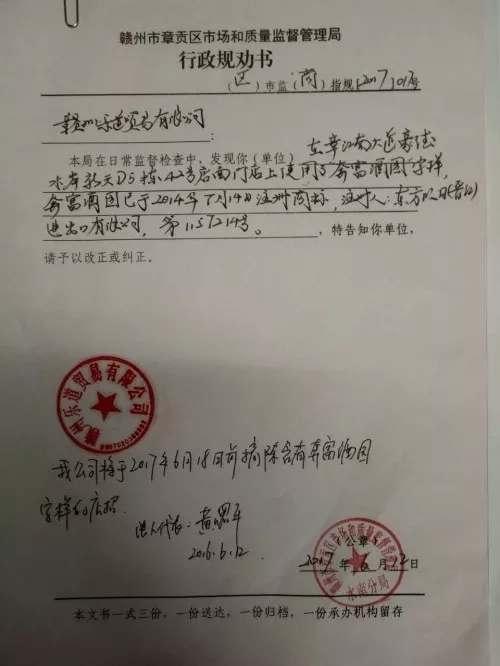 赣州市章贡区市场和质量监督管理局
行政规劝书
(区)市监(商)指规[2017]017号
赣州乐道贸易有限公司:
本局在日常监督检查中,发现你(单位)在章江南大道豪德
水岸新天D5栋42号店面门店上使用了奔富酒园字样,
奔富酒园已于2014年7月14日注册商标,注册人:东方
进出口有限公司,第11357214号。,特告知你单位,
请予以改正或纠正。
赣州乐道贸易有限公司
我公司将于2017年6月18日前摘除含有奔富酒园
字样的店招.
法人代表:黄
2016.6.12
(公章)
2017年6月12日
水南分局
本文书一式三份,一份送达,一份归档,一份承办机构留存